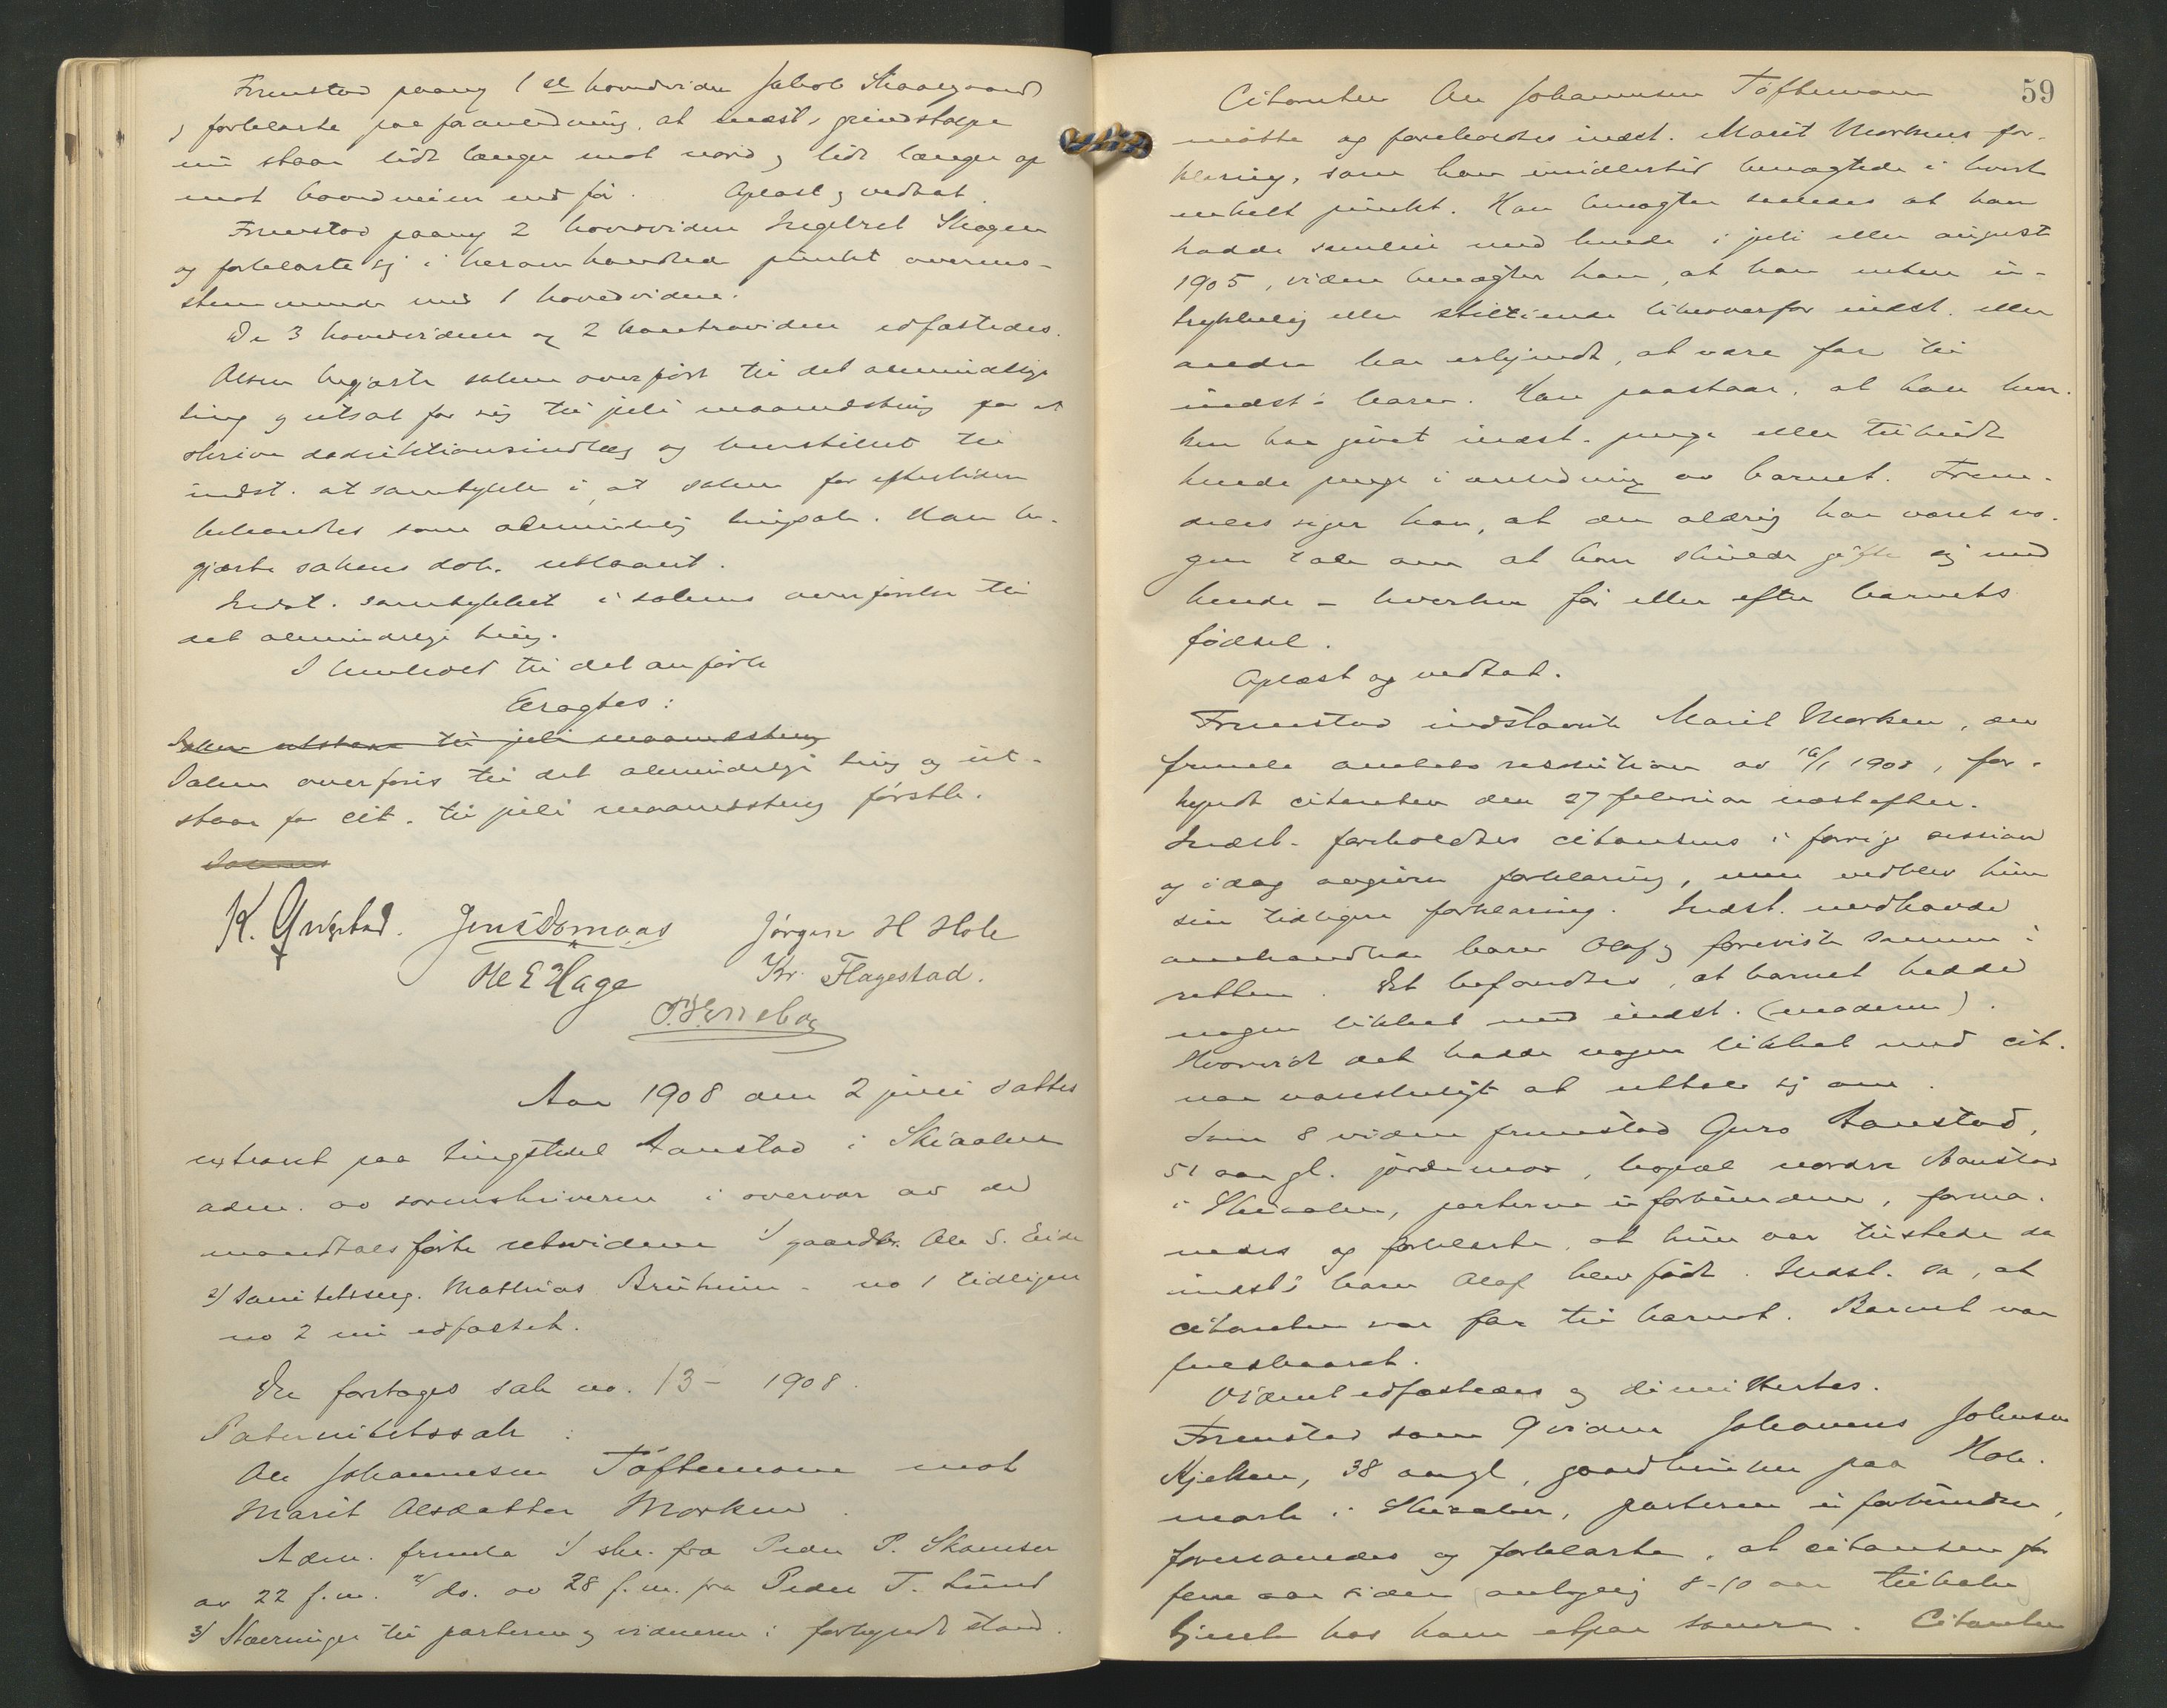 Fremstod paany 1ste hovedvidne Jakob Skaargaard
, forklarte paa foranledning, at indst.s grindstolpe
nu staar lidt længer mot nord og lidt længer op
mot hovedveien end før. Oplæst og vedtat.
Fremstod paany 2 hovedvidne Ingebret Skogen
og forklarte sig i heromhandlede punkt overens-
stemmende med 1 hovedvidne.
De 3 hovedvidner og 2 kontravidner edfæstedes.
Olsen begjærte saken overført til det almindelige
ting og utsat for sig til juli maanedsting for at
skrive deduktionsindlæg og henstillet til
indst. at samtykke i, at saken for eftertiden
behandles som almindelig tingsak. Han be-
gjærte sakens dok. utlaant.
Indst. samtykket i sakens overførelse til
det almindelige ting.
I henhold til det anførte
Eragtes:
Saken utstaar til juli maanedsting
Saken overføres til det almindelige ting og ut-
staar for cit. til juli maanedsting førstk.
Sakens
K. Angstad. Jens Dømaas Jørgen H Hole
Ole E Hage Kr. Flagestad.
Aar 1908 den 2 juni sattes
extraret paa tingstedet Aanstad i Skiaaker
adm. av sorenskriveren i overvær av de
mandtalsførte retsvidner 1/ gaardbr. Ole S. Eide
2/ Sanitetsserg. Mathias Bruheim - no 1 tidligere
no 2 nu edfæstet.
Der foretoges sak no. 13 - 1908.
Paternitetssak:
Ole Johannesen Töftemoen mot
Marit Olsdatter Morken.
Adm. fremla 1/ skr. fra Peder P. Skamser
av 22 f.m. 2/ do. av 28 f.m. fra Peder T. Lund
3/ Stævninger til parterne og vidnerne i forkyndt stand.
59
Citanten Ole Johannesen Töftemoen
møtte og foreholdtes indst. Marit Morkens for-
klaring, som han imidlertid benegtede i hvert
enkelt punkt. Han benegter saaledes at han
hadde samleie med hende i juli eller august
1905, videre benegter han, at han enten u-
trykkelig eller stiltiende likeoverfor indst. eller
andre har erkjendt, at være far til
indst.s barn. Han paastaar, at han hver-
ken har givet indst. penge eller tilbudt
hende penge i anledning av barnet. Frem-
deles siger han, at der aldrig har været no-
gen tale om at han skulde gifte sig med
hende – hverken før eller efter barnets
fødsel.
Oplæst og vedtat.
Fremstod indstævnte Marit Morken, der
fremla amtets resolution av 16/1 1908, for-
kyndt citanten den 27 februar næstefter.
Indst. foreholdtes citantens i forrige session
og idag avgivne forklaring, men vedblev hun
sin tidligere forklaring. Indst. medhavde
omhandlede barn Olaf og foreviste samme i
retten. Det befandtes, at barnet hadde
nogen likhet med indst. (moderen).
Hvorvidt det hadde nogen likhet med cit.
var vanskeligt at uttale sig om.
Som 8 vidne fremstod Guro Aanstad,
51 aar gl. jordemor, bopæl nordre Aanstad
i Skiaaker, parterne uforbunden, forma-
nedes og forklarte, at hun var tilstede da
indst.s barn Olaf blev født. Indst. sa, at
citanten var far til barnet. Barnet var
fuldbaaret.
Vidnet edfæstedes og dimitteres.
Fremstod som 9 vidne Johannes Johnsen
Kjekken, 38 aar gl., gaardbruker paa Hole-
mark i Skiaaker, parterne uforbunden,
formanedes og forklarte, at citanten for
flere aar siden (antagelig 8-10 aar tilbake)
tjente hos ham etpar somre. Citanten